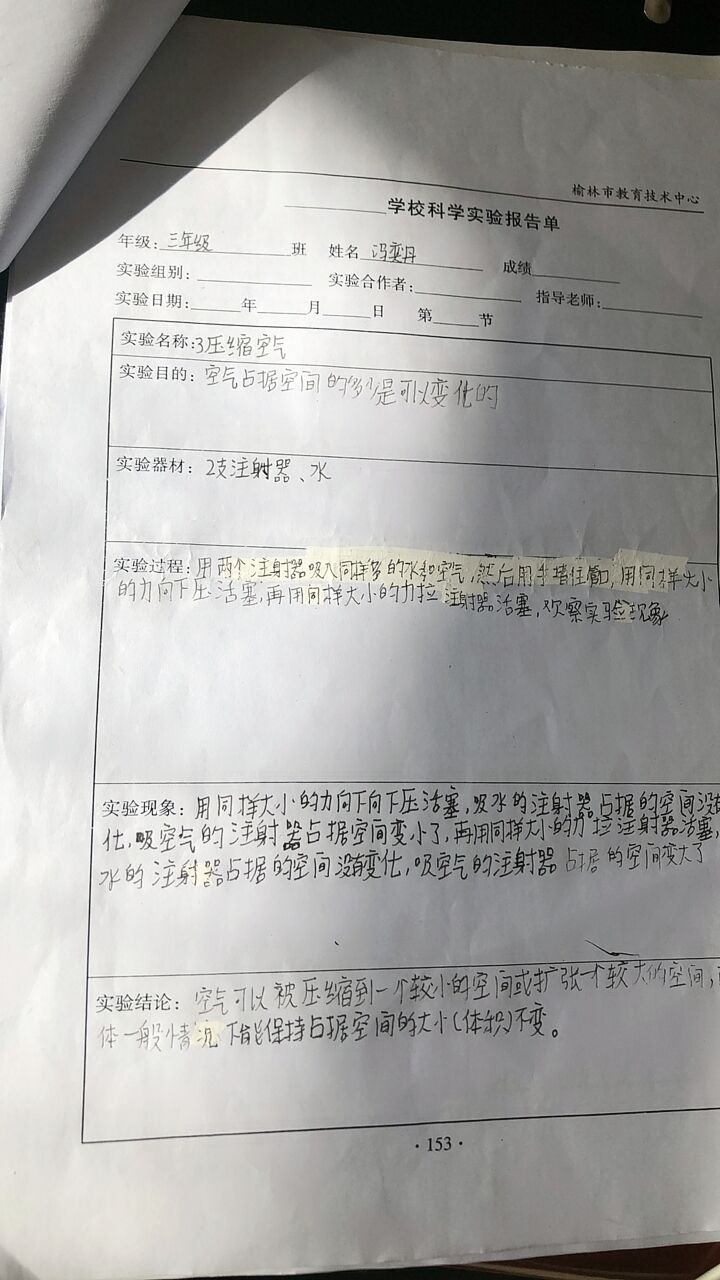 榆林市教育技术中心
学校科学实验报告单
年级:三年级 班 姓名 冯奕丹 成绩
实验组别: 实验合作者: 指导老师:
实验日期: 年 月 日 第 节
实验名称:3压缩空气
实验目的: 空气占据空间的多少是可以变化的
实验器材: 2支注射器、水
实验过程: 用两个注射器吸入同样多的水和空气,然后用手堵住管口,用同样大小
的力向下压活塞,再用同样大小的力拉注射器活塞,观察实验现象
实验现象: 用同样大小的力向下向下压活塞,吸水的注射器占据的空间没
化,吸空气的注射器占据空间变小了,再用同样大小的力拉注射器活塞,
水的注射器占据的空间没有变化,吸空气的注射器占据的空间变大了
实验结论: 空气可以被压缩到一个较小的空间或扩张一个较大的空间,
体一般情况下能保持占据空间的大小(体积)不变。
·153·